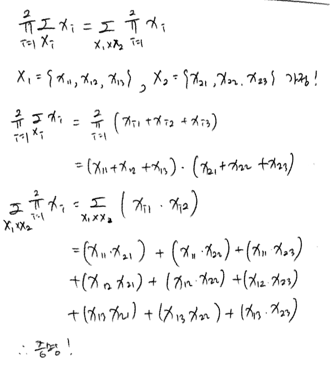 2 Π i=1 Σ Xi xi = Σ X1×X2 2 Π i=1 xi
X1 = {x11, x12, x13}, X2 = {x21, x22, x23} 가정!
2 Π i=1 Σ Xi xi = 2 Π i=1 (xi1 + xi2 + xi3)
= (x11 + x12 + x13) · (x21 + x22 + x23)
Σ X1×X2 2 Π i=1 xi = Σ X1×X2 (xi1 · xi2)
= (x11 · x21) + (x11 · x22) + (x11 · x23)
+ (x12 x21) + (x12 · x22) + (x12 · x23)
+ (x13 x21) + (x13 x22) + (x13 · x23)
∴ 증명!